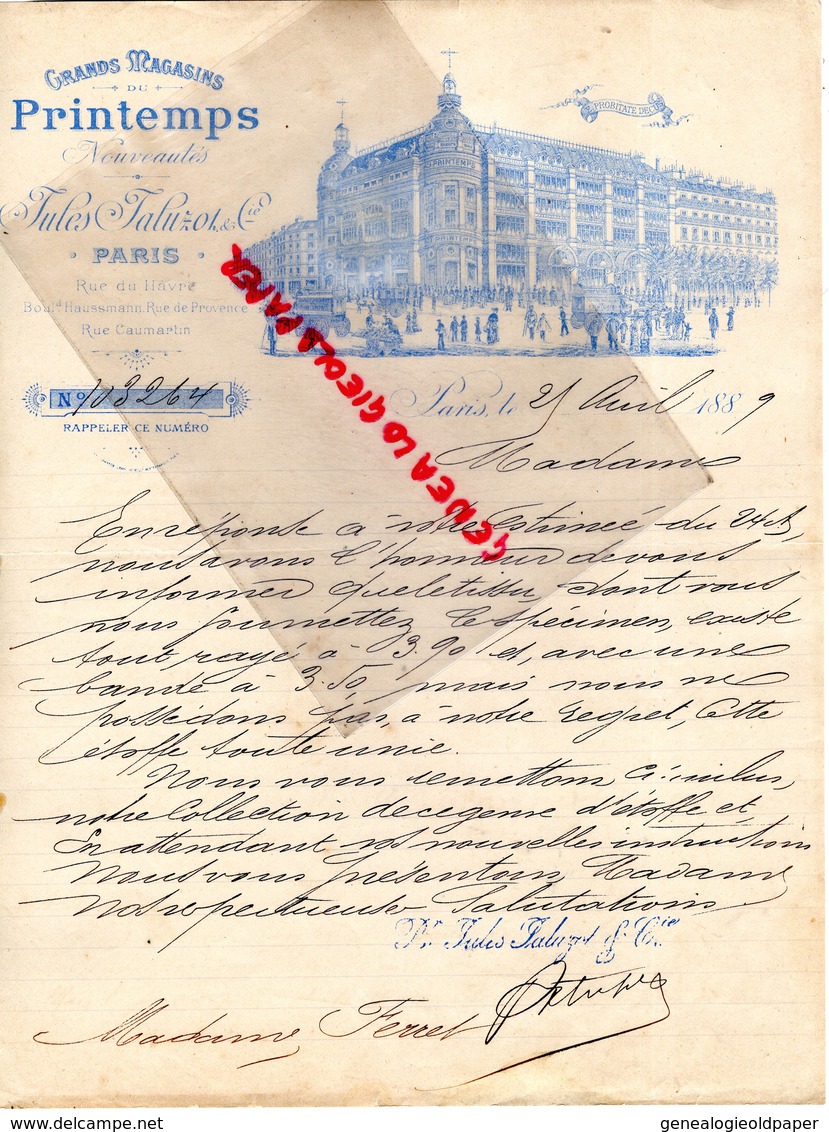 GRANDS MAGASINS
DU
Printemps
Nouveautés
Jules Jaluzot, & Cie
PARIS
Rue du Hâvre
Bould Haussmann, Rue de Provence
Rue Caumartin
PROBITATE DECUS
PRINTEMPS
No 103264
RAPPELER CE NUMÉRO
Paris, le 25 Avril 1889
Madame
En réponse à votre estimée du 24 ct,
nous avons l'honneur de vous
informer que le tissu, dont vous
nous soumettez le spécimen, existe
tout rayé à 3.90 et, avec une
bande à 3.50, mais nous ne
possédons pas, à notre regret, cette
étoffe toute unie.
Nous vous remettons ci-inclus,
notre Collection de ce genre d'étoffe et,
En attendant vos nouvelles instructions
Nous vous présentons, Madame
Nos respectueuses Salutations.
Pr. Jules Jaluzot & Cie
Madame Ferret
GENEALOGIEOLDPAPER
genealogieoldpaper